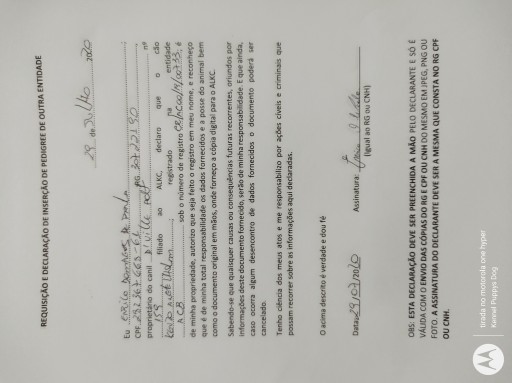 REQUISIÇÃO E DECLARAÇÃO DE INSERÇÃO DE PEDIGREE DE OUTRA ENTIDADE
29 de Julho 2020
Eu
CPF RG nº
proprietário do canil
159 filiado ao ALKC, declaro que o cão
registrado na entidade
ACB sob o número de registro é
de minha propriedade, autorizo que seja feito o registro em meu nome, e reconheço
que é de minha total responsabilidade os dados fornecidos e a posse do animal bem
como o documento original em mãos, onde forneço a cópia digital para o ALKC.
Sabendo-se que quaisquer causas ou consequências futuras recorrentes, oriundos por
informações deste documento fornecido, serão de minha responsabilidade. E que ainda,
caso ocorra algum desencontro de dados fornecidos o documento poderá ser
cancelado.
Tenho ciência dos meus atos e me responsabilizo por ações cíveis e criminais que
possam recorrer sobre as informações aqui declaradas.
O acima descrito é verdade e dou fé
Data: 29/07/2020 Assinatura:
(Igual ao RG ou CNH)
OBS: ESTA DECLARAÇÃO DEVE SER PREENCHIDA A MÃO PELO DECLARANTE E SÓ É
VÁLIDA COM O ENVIO DAS CÓPIAS DO RG E CPF OU CNH DO MESMO EM JPEG, PNG OU
FOTO. A ASSINATURA DO DECLARANTE DEVE SER A MESMA QUE CONSTA NO RG CPF
OU CNH.
tirada no motorola one hyper
Kennel Puppys Dog